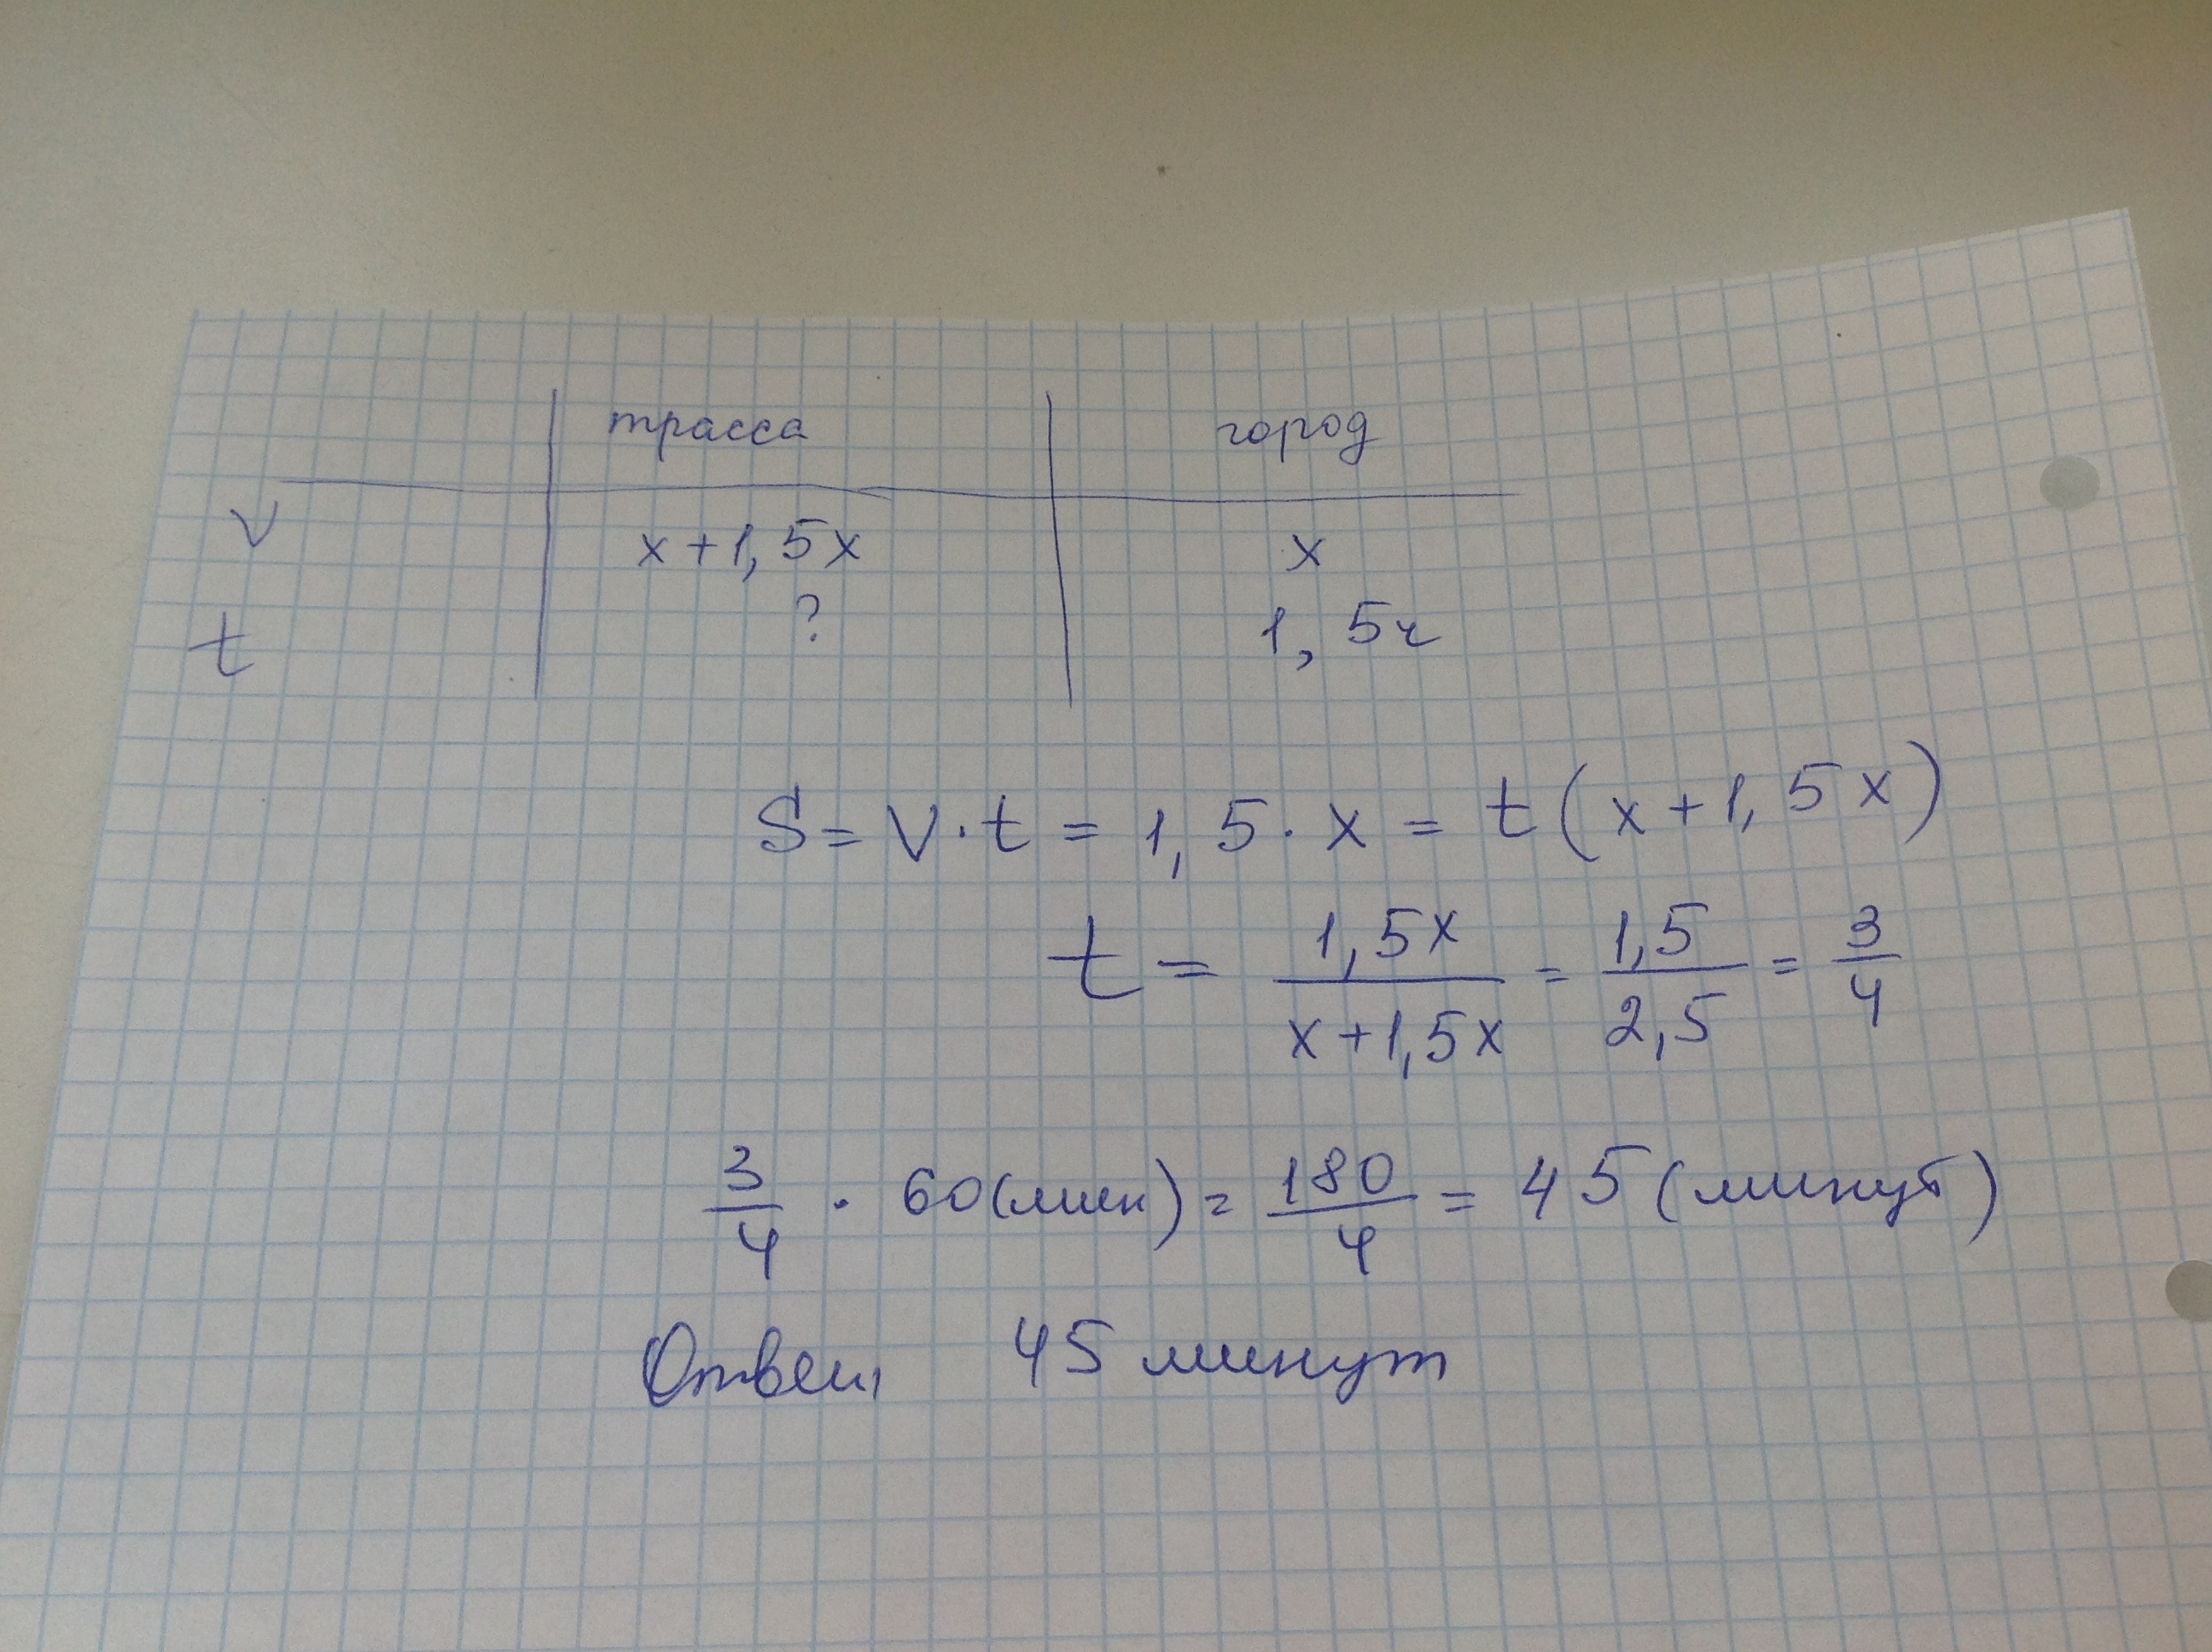 трасса город
v x+1,5x x
t ? 1,5ч
S = v · t = 1,5 · x = t (x+1,5x)
t = 1,5x / x+1,5x = 1,5 / 2,5 = 3/4
3/4 · 60(мин) = 180/4 = 45 (минут)
Ответ 45 минут